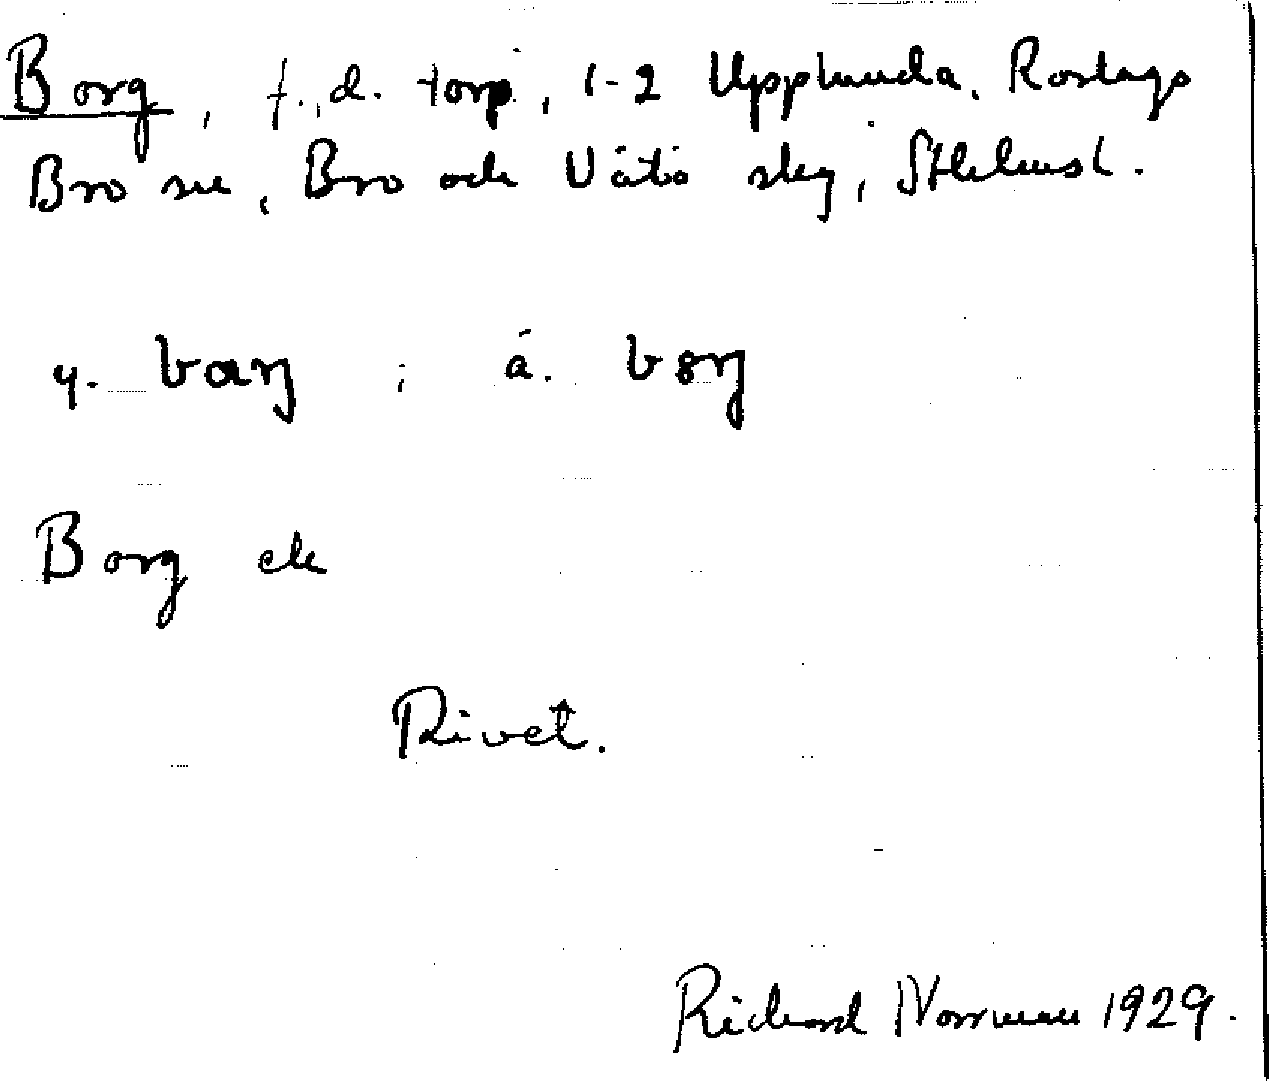 Borg, f.d. torp, 1-2 Upplunda, Roslags
Bro sn, Bro och Vätö skg, Sthlms l.
y. barj ; ä. borj
Borg ek
Rivet.
Richard Norrman 1929.